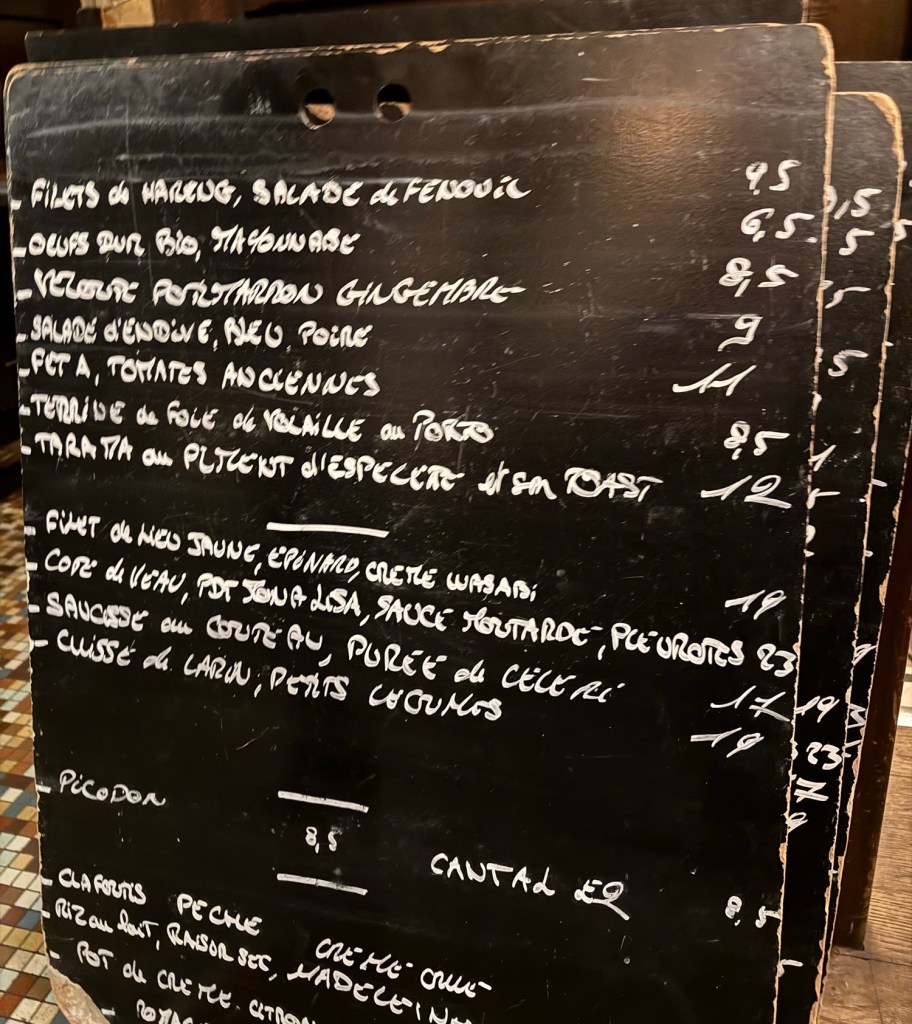 - FILETS de HARENG, SALADE de FENOUIL 9,5
- OEUFS DUR BIO, MAYONNAISE 6,5
- VELOUTE POTIMARRON GINGEMBRE 8,5
- SALADE d'ENDIVE, BLEU, POIRE 9
- FETA, TOMATES ANCIENNES 11
- TERRINE de FOIE de VOLAILLE au PORTO 8,5
- TARAMA au PIMENT d'ESPELETTE et son TOAST 12
- FILET de LIEU JAUNE, EPINARD, CREME WASABI 19
- COTE de VEAU, PDT MONALISA, SAUCE MOUTARDE, PLEUROTES 23
- SAUCISSE au COUTEAU, PUREE de CELERI 17
- CUISSE de LAPIN, PETITS LEGUMES 19
- PICODON 8,5 CANTAL 8,5
- CLAFOUTIS PECHE
- RIZ au lait, RAISIN SEC, MADELEINE CREME
- POT de CREME CITRON